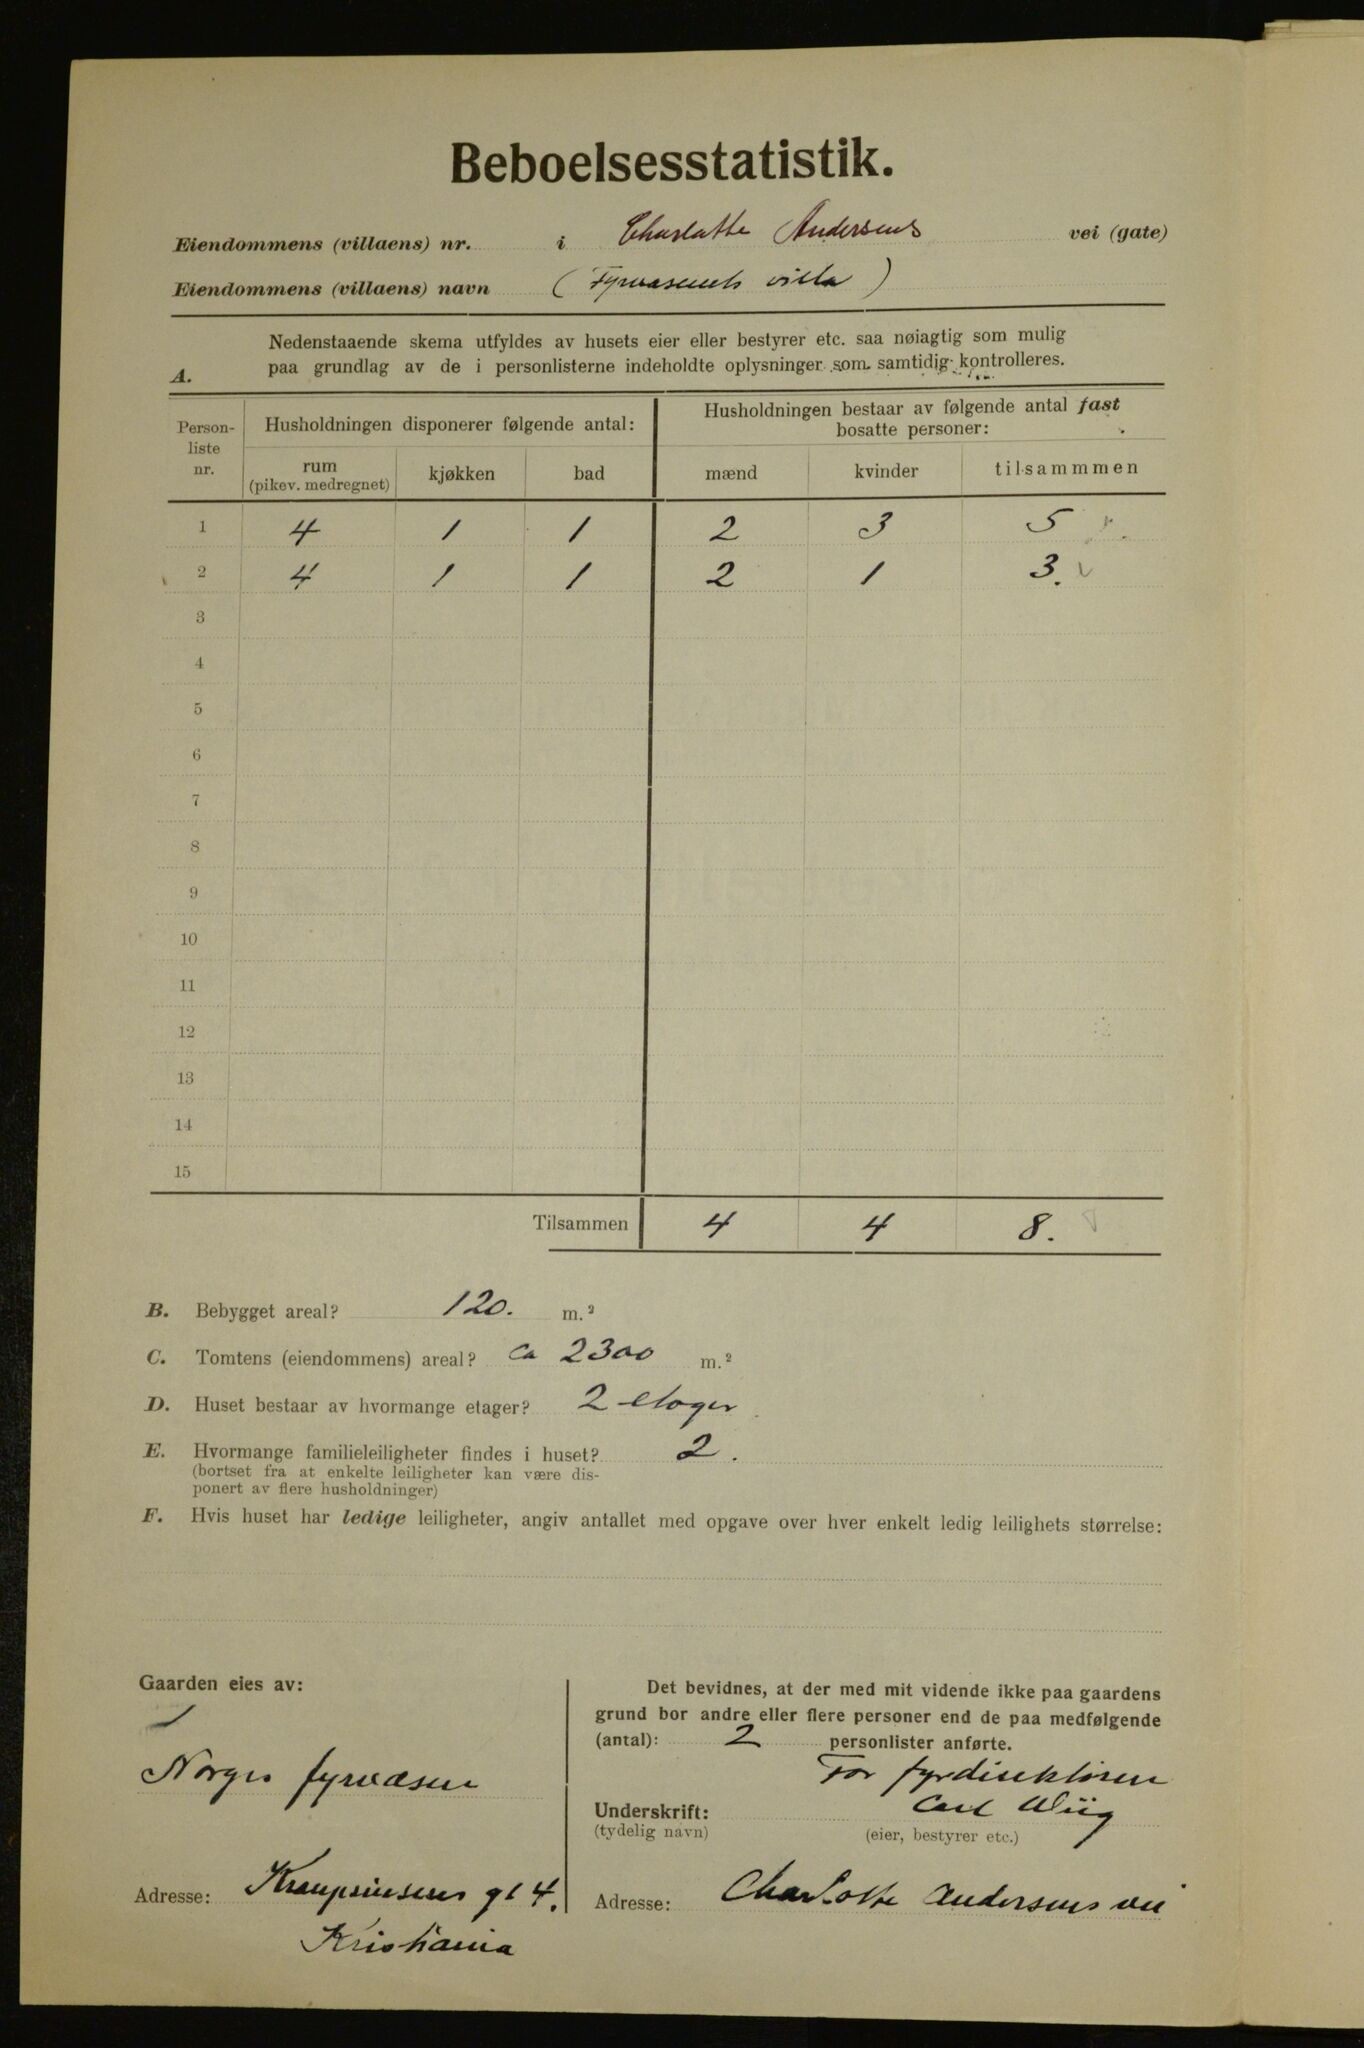 Beboelsesstatistik.
Eiendommens (villaens) nr. i Charlotte Andersens vei (gate)
Eiendommens (villaens) navn (Fyrvæsenets villa)
A. Nedenstaaende skema utfyldes av husets eier eller bestyrer etc. saa nøiagtig som mulig
paa grundlag av de i personlisterne indeholdte oplysninger som samtidig kontrolleres.
Person-liste nr. Husholdningen disponerer følgende antal: Husholdningen bestaar av følgende antal fast bosatte personer:
rum (pikev. medregnet) kjøkken bad mænd kvinder tilsammmen
1 4 1 1 2 3 5
2 4 1 1 2 1 3.
3
4
5
6
7
8
9
10
11
12
13
14
15
Tilsammen 4 4 8.
B. Bebygget areal? 120. m.²
C. Tomtens (eiendommens) areal? ca 2300 m.²
D. Huset bestaar av hvormange etager? 2 etager
E. Hvormange familieleiligheter findes i huset? 2.
(bortset fra at enkelte leiligheter kan være dis-
ponert av flere husholdninger)
F. Hvis huset har ledige leiligheter, angiv antallet med opgave over hver enkelt ledig leilighets størrelse:
Gaarden eies av:
Norges fyrvæsen
Adresse: gt 4.
Kristiania
Det bevidnes, at der med mit vidende ikke paa gaardens
grund bor andre eller flere personer end de paa medfølgende
(antal): 2 personlister anførte.
For fyrdirektøren
Underskrift: Carl Wiig
(tydelig navn) (eier, bestyrer etc.)
Adresse: Charlotte Andersens vei